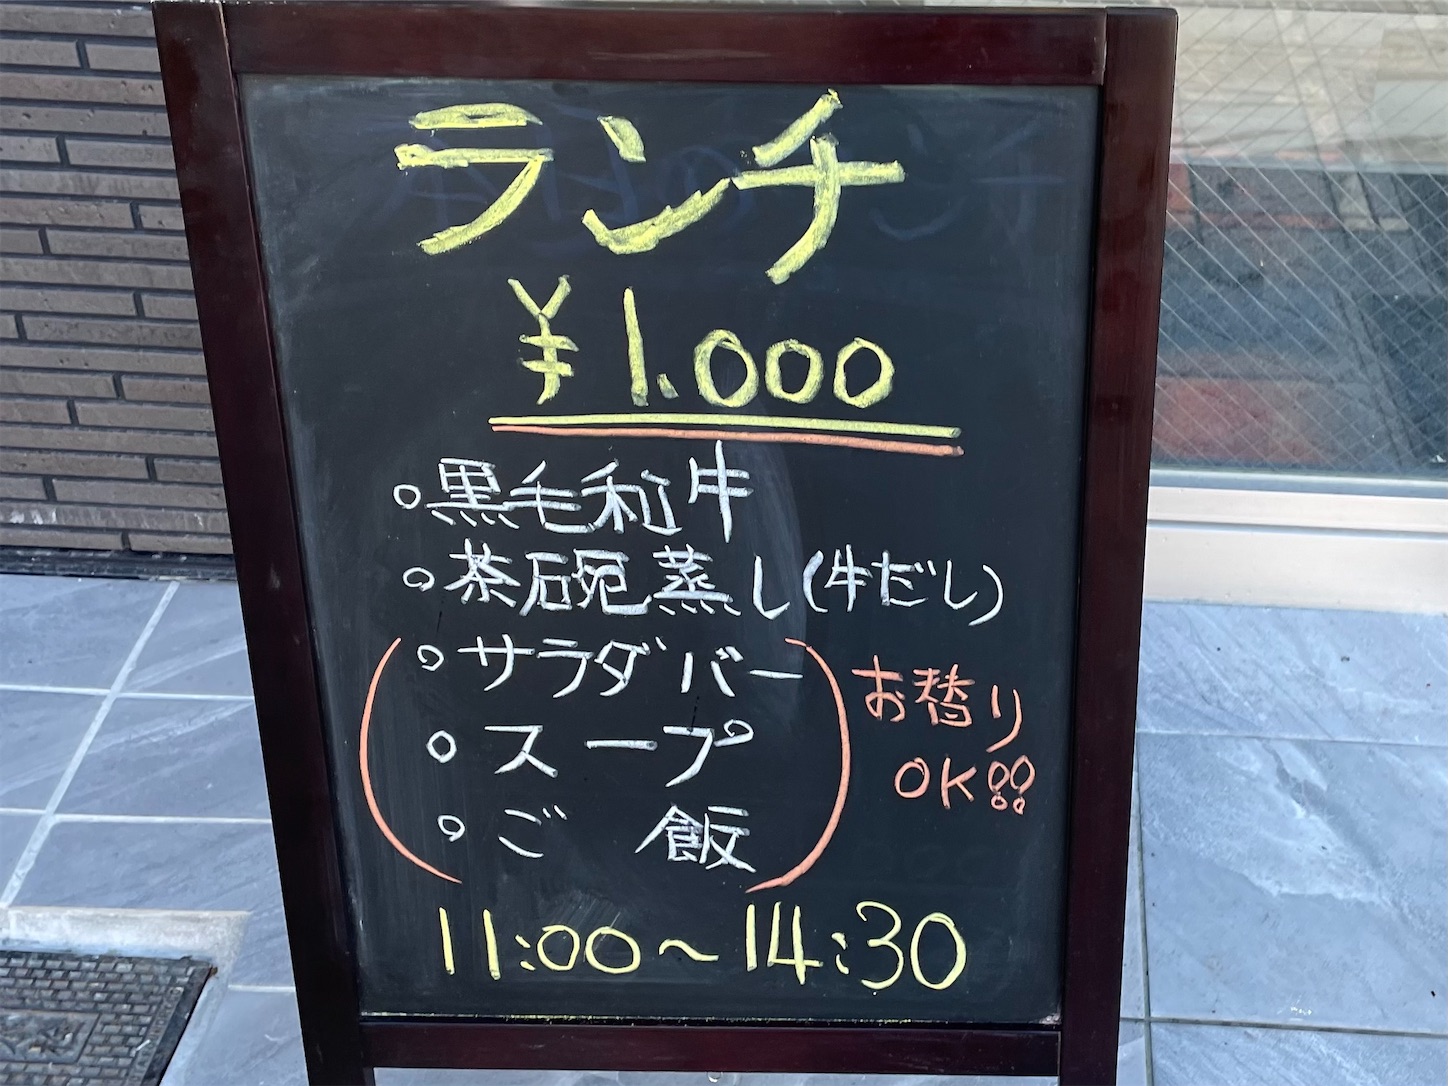 ランチ
¥1.000
○黒毛和牛
○茶碗蒸し(牛だし)
○サラダバー
○スープ
○ご飯
お替り
OK!!
11:00~14:30